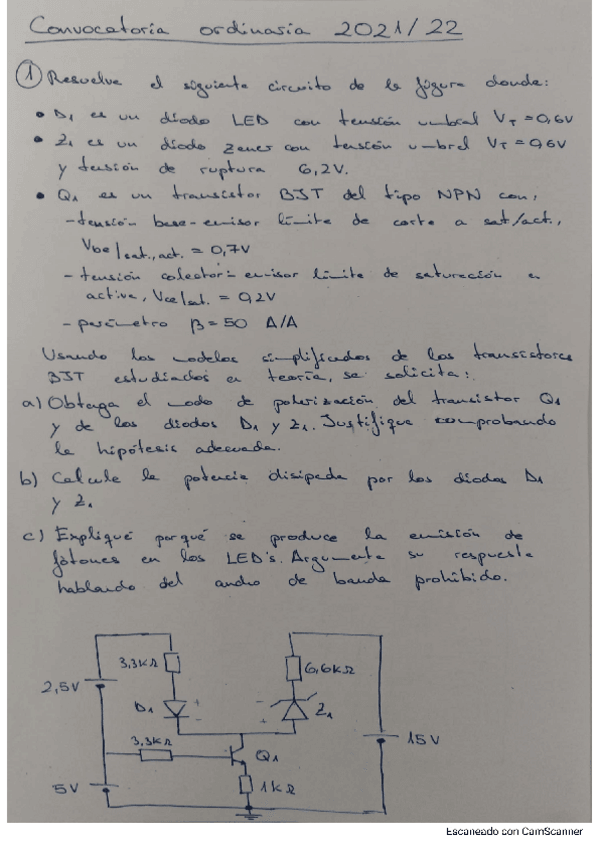 Convocatoria ordinaria 2021/22
① Resuelve el siguiente circuito de la figura donde:
• D1 es un diodo LED con tensión umbral VT = 0,6V
• Z1 es un diodo zener con tensión umbral VT = 0,6V
y tensión de ruptura 6,2V.
• Q1 es un transistor BJT del tipo NPN con:
- tensión base-emisor límite de corte a sat/act.,
Vbe/sat.,act. = 0,7V
- tensión colector-emisor límite de saturación a
activa, Vce/sat. = 0,2V
- parámetro β = 50 A/A
Usando los modelos simplificados de los transistores
BJT estudiados en teoría, se solicita:
a) Obtenga el modo de polarización del transistor Q1
y de los diodos D1 y Z1. Justifique comprobando
la hipótesis adecuada.
b) Calcule la potencia disipada por los diodos D1
y Z1
c) Expliqué porqué se produce la emisión de
fotones en los LED's. Argumente su respuesta
hablando del ancho de banda prohibido.
3,3KΩ
6,6KΩ
2,5V
D1
+
-
-
+
Z1
3,3KΩ
Q1
15V
5V
1KΩ
Escaneado con CamScanner